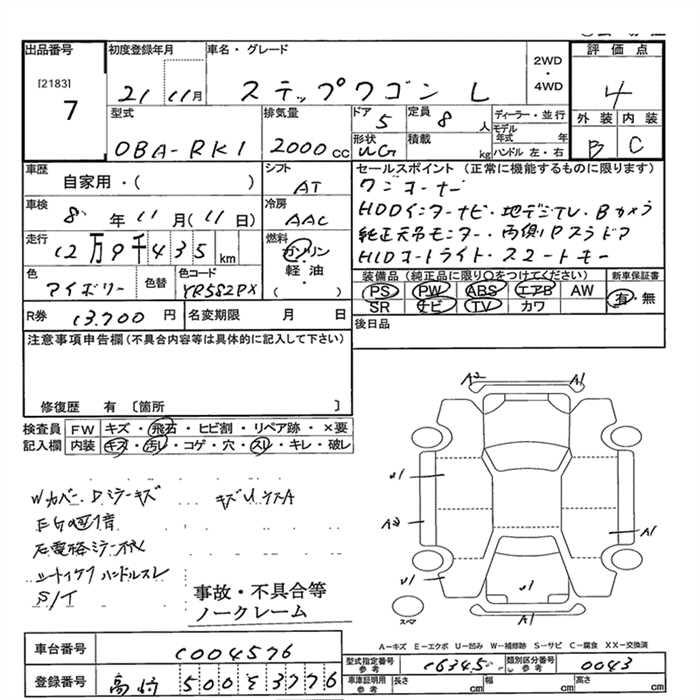 出品番号
[2183]
7
初度登録年月
21 11月
車名・グレード
ステップワゴン L
2WD
・
4WD
評価点
4
外装 内装
B C
型式
DBA-RK1
排気量
2000cc
ドア
5
定員
8人
ディーラー・並行
モデル年式 年
ハンドル 左・右
形状
WG
積載
kg
車歴
自家用・( )
シフト
AT
車検
8年11月(11日)
冷房
AAC
走行
12万9千435km
燃料
ガソリン
・
軽油
( )
色
アイボリー
色替
色コード
YR582PX
R券
13,700円
名変期限 月 日
セールスポイント(正常に機能するものに限ります)
ワンオーナー
HDDインターナビ・地デジTV・Bカメラ
純正天吊モニター・両側Pスラドア
HIDオートライト・スマートキー
装備品(純正品に限り○をつけてください)
PS PW ABS エアB AW
SR ナビ TV カワ
新車保証書
有・無
後日品
注意事項申告欄(不具合内容等は具体的に記入して下さい)
修復歴 有 〔箇所 〕
検査員
記入欄
FW キズ・飛石・ヒビ割・リペア跡・×要
内装 キズ・汚レ・コゲ・穴・スレ・キレ・破レ
Wカバー・Dミラーキズ
シートイタミ ハンドルスレ
S/T
事故・不具合等
ノークレーム
A2
A1
U1
A2
A1
U1
U1
A1
スペア
A-キズ E-エクボ U-凹み W-補修跡 S-サビ C-腐食 XX-交換済
車台番号
C004576
登録番号
高崎 500 さ 3776
型式指定番号
参考
16345
類別区分番号
参考
0043
車庫証明用
参考
長さ cm
幅 cm
高さ cm